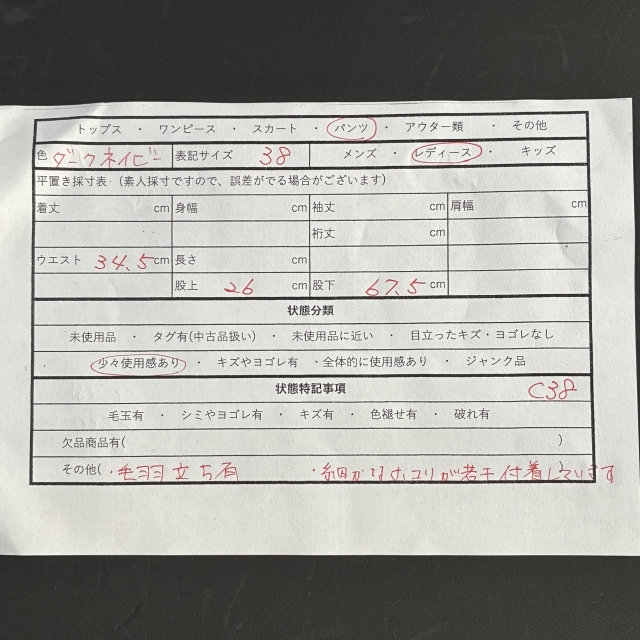 トップス ・ ワンピース ・ スカート ・ パンツ ・ アウター類 ・ その他
色 ダークネイビー 表記サイズ 38 メンズ ・ レディース ・ キッズ
平置き採寸表 (素人採寸ですので、誤差がでる場合がございます)
着丈 cm 身幅 cm 袖丈 cm 肩幅 cm
裄丈 cm
ウエスト 34.5 cm 長さ cm
股上 26 cm 股下 67.5 cm
状態分類
未使用品 ・ タグ有(中古品扱い) ・ 未使用品に近い ・ 目立ったキズ・ヨゴレなし
少々使用感あり ・ キズやヨゴレ有 ・全体的に使用感あり ・ ジャンク品
状態特記事項 C38
毛玉有 ・ シミやヨゴレ有 ・ キズ有 ・ 色褪せ有 ・ 破れ有
欠品商品有( )
その他( ・毛羽立ち有 ・細かなホコリが若干付着しています